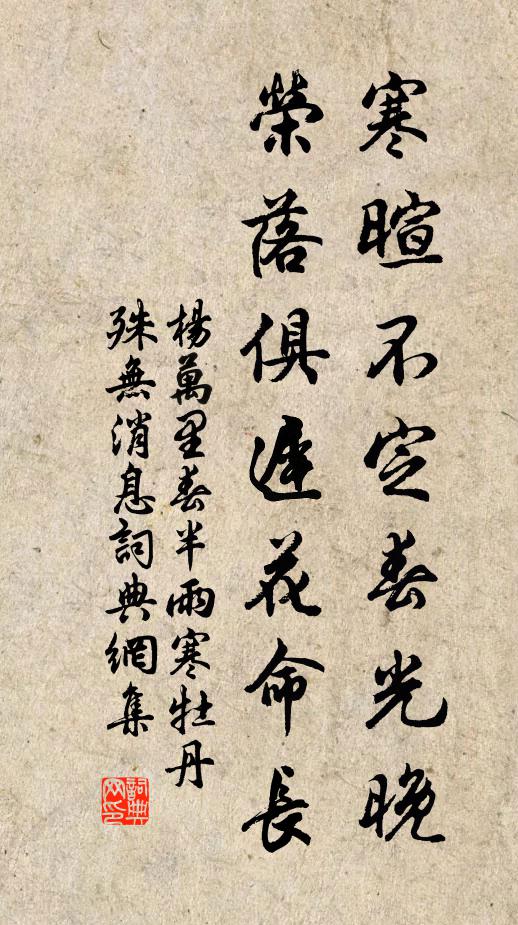 寒暄不定春光晚
榮落俱遲花命長
楊萬里春半雨寒牡丹
殊無消息詞典網集
詞典
网印